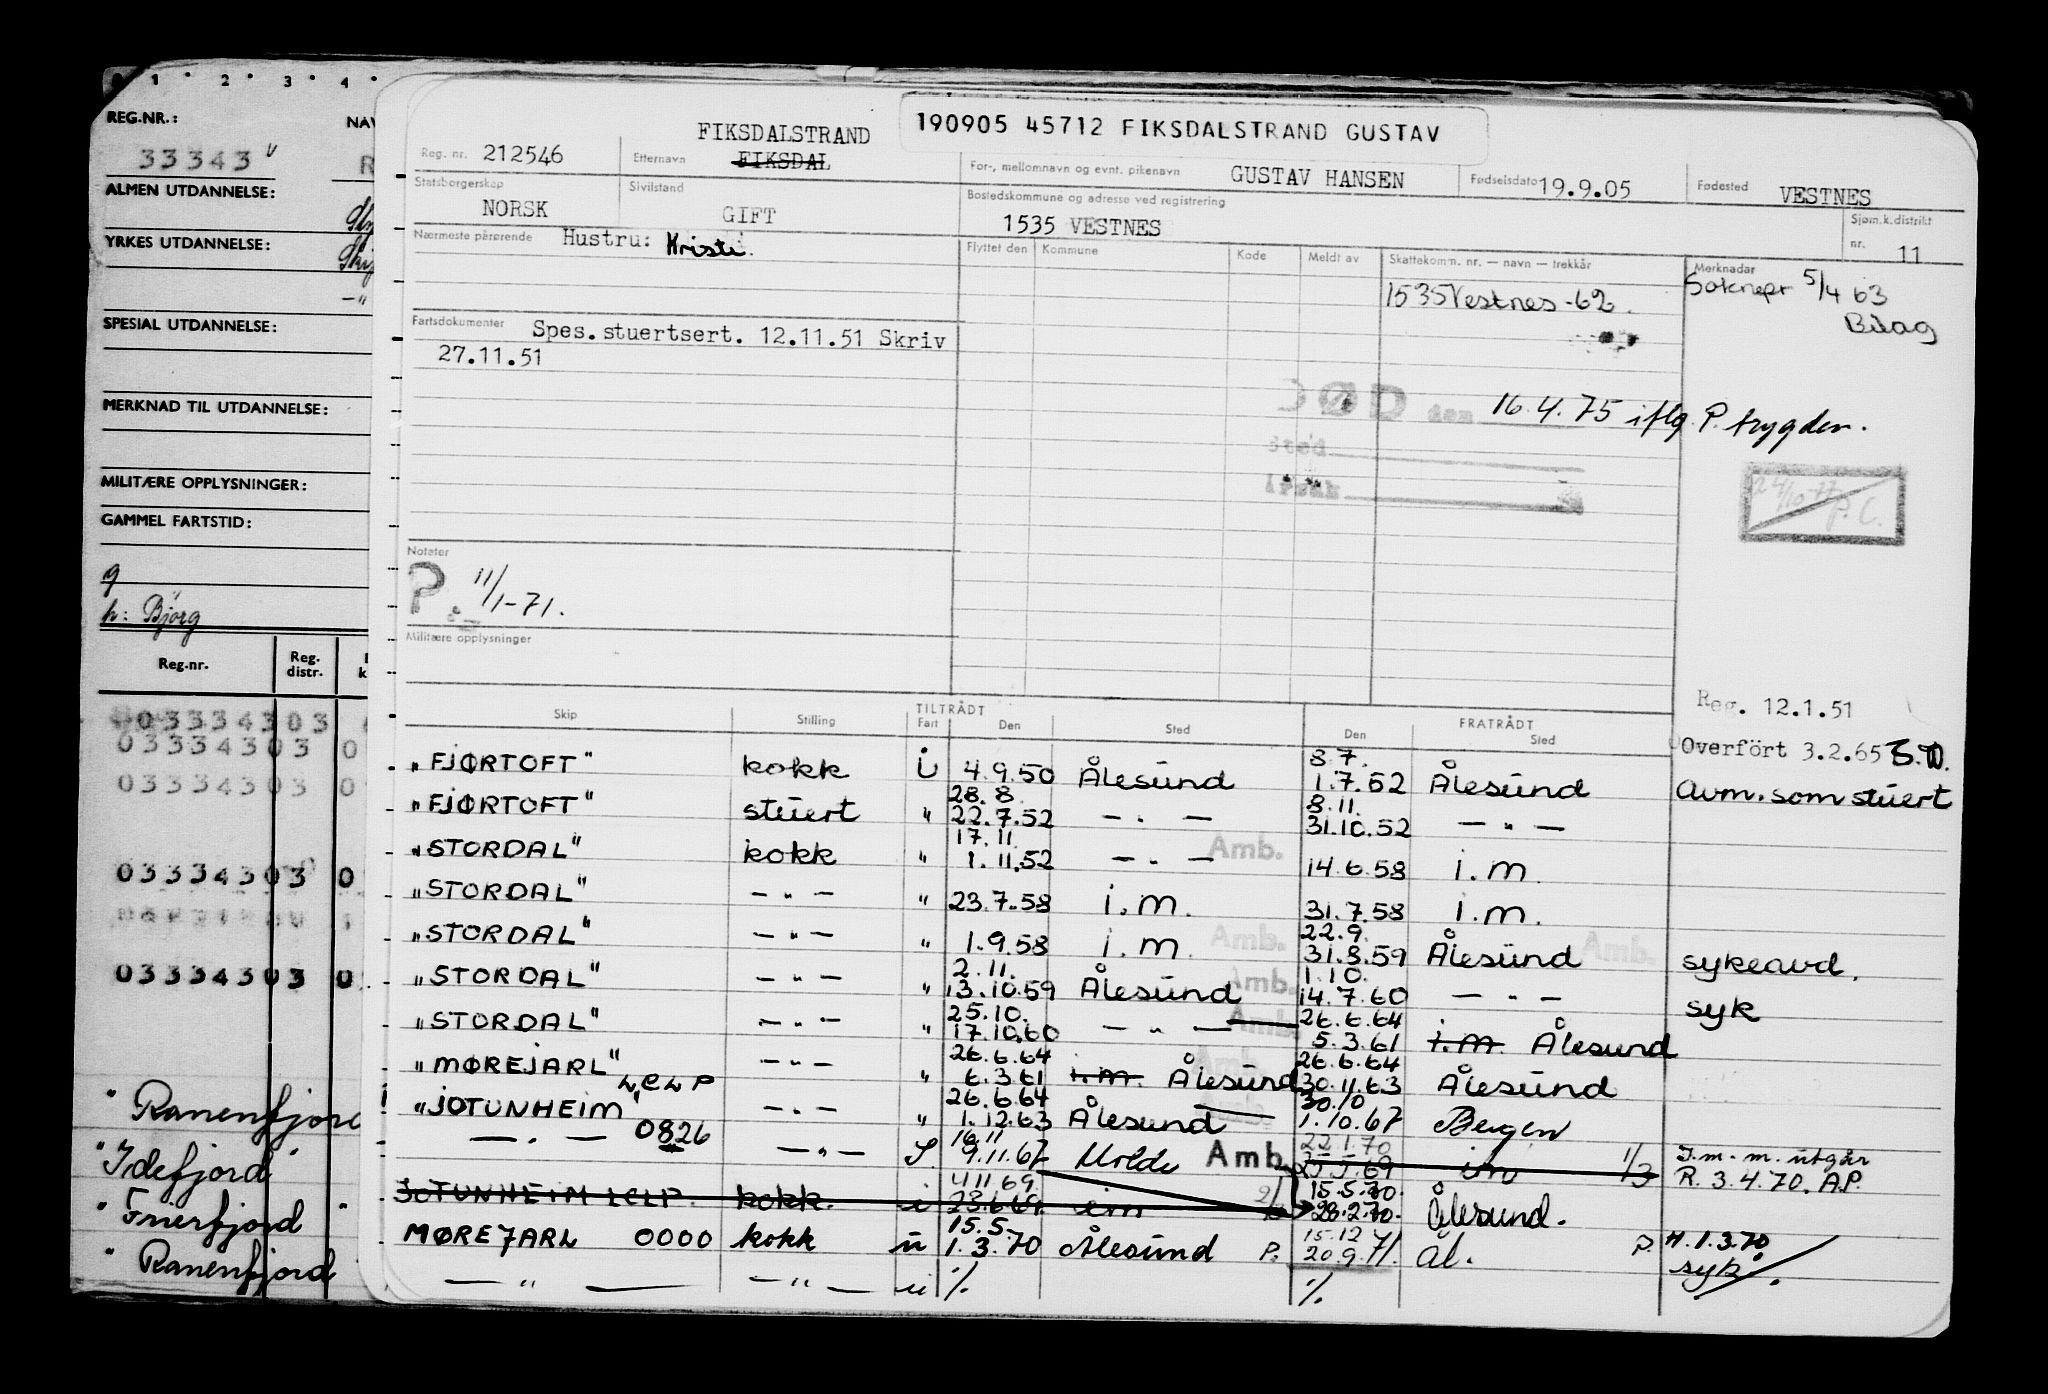 0 1 2 3 4
REG.NR.:
33343
ALMEN UTDANNELSE:
YRKES UTDANNELSE:
SPESIAL UTDANNELSE:
MERKNAD TIL UTDANNELSE:
MILITÆRE OPPLYSNINGER:
GAMMEL FARTSTID:
g
h: Bjørg
Reg.nr. Reg. distr.
03334303
03334303 0
03334303 0
03334303 0
03334303 0
"Ranenfjord
"Idefjord"
"Frierfjord "
"Ranenfjord
190905 45712 FIKSDALSTRAND GUSTAV
FIKSDALSTRAND
Reg. nr. 212546 Etternavn FIKSDAL For-, mellomnavn og evnt. pikenavn GUSTAV HANSEN Fødselsdato 19.9.05 Fødested VESTNES
Statsborgerskap NORSK Sivilstand GIFT Bostedskommune og adresse ved registrering 1535 VESTNES Sjøm.k.distrikt nr. 11
Nærmeste pårørende Hustru: Kristi.
Flyttet den Kommune Kode Meldt av Skattekom.n. nr. — navn — trekkår Merknadar
1535 Vestnes -62. Soknepr 5/4 63
Bilag
Fartsdokumenter Spes.stuertsert. 12.11.51 Skriv
27.11.51
DØD den 16.4.75 iflg P. trygden.
Sted
Årsak
24/10-77 P.C.
Notater
P. 11/1-71.
Militære opplysninger
Reg. 12.1.51
Overfört 3.2.65 S.D.
TILTRÅDT FRATRÅDT
Skip Stilling Fart Den Sted Den Sted
8.7.
"FJØRTOFT" kokk i 4.9.50 Ålesund 1.7.52 Ålesund avm. som stuert
28.8. 8.11.
"FJØRTOFT" stuert " 22.7.52 — " — 31.10.52 — " —
17.11.
"STORDAL" kokk " 1.11.52 — " — Amb. 14.6.58 i.m.
"STORDAL" — " — " 23.7.58 i.m. 31.7.58 i.m.
22.9.
"STORDAL" — " — " 1.9.58 i.m. Amb. 31.8.59 Ålesund Amb. sykeavd.
2.11. 1.10.
"STORDAL" — " — " 13.10.59 Ålesund Amb. 14.7.60 — " — syk
25.10. 26.6.64
"STORDAL" — " — " 17.10.60 — " — Amb. 5.3.61 i.m. Ålesund
26.6.64 26.6.64
"MØREJARL" — " — " 6.3.61 i.m. Ålesund Amb. 30.11.63 Ålesund
LCLP
26.6.64 30.10
"JOTUNHEIM" — " — " 1.12.63 Ålesund Amb. 1.10.67 Bergen
16.11 22.1.70
— " — 0826 — " — S. 9.11.67 Molde Amb. 25.5.69 im 1/3 I.m.m. utgår
R. 3.4.70. A.P.
4.11.69. 15.5.70.
JOTUNHEIM LCLP. kokk. i 23.6.69. im 28.2.70. Ålesund.
15.5. 15.12
MØREJARL 0000 kokk u 1.3.70 Ålesund P. 20.9.71. Ål. P. H.1.3.70
syk.
— " — — " — u %. %.